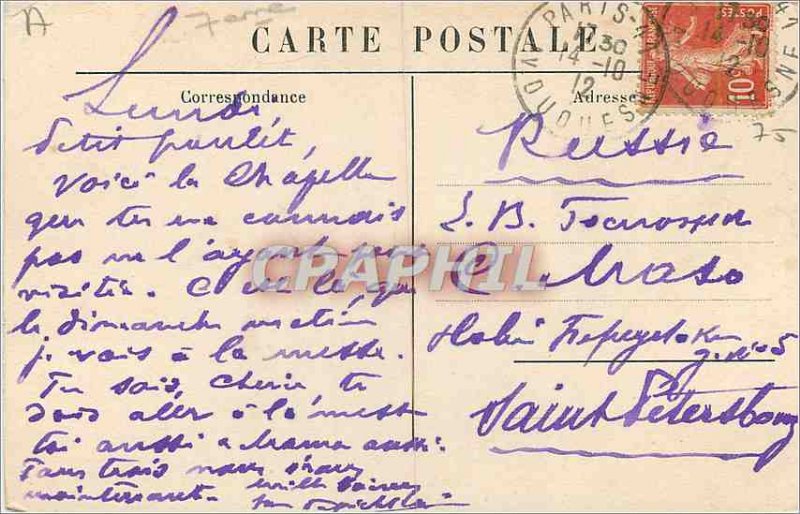 A
7
CARTE POSTALE
PARIS
30
14-10
12
DUQUESNE
POSTES
10
75
Correspondance
Adresse
Lundi,
Petit poulet,
voici la Chapelle
que tu ne connais
pas ne l'ayant pas
visitée. C'est là, que
le dimanche matin
je vais à la messe.
Tu sais, Cherie, tu
dois aller à la messe
toi aussi
Tous trois nous
maintenant. mille baisers
Russie
E. В. Госпожа
Новый Переулок
д. № 5
Saint Pétersbourg
CPAPHIL